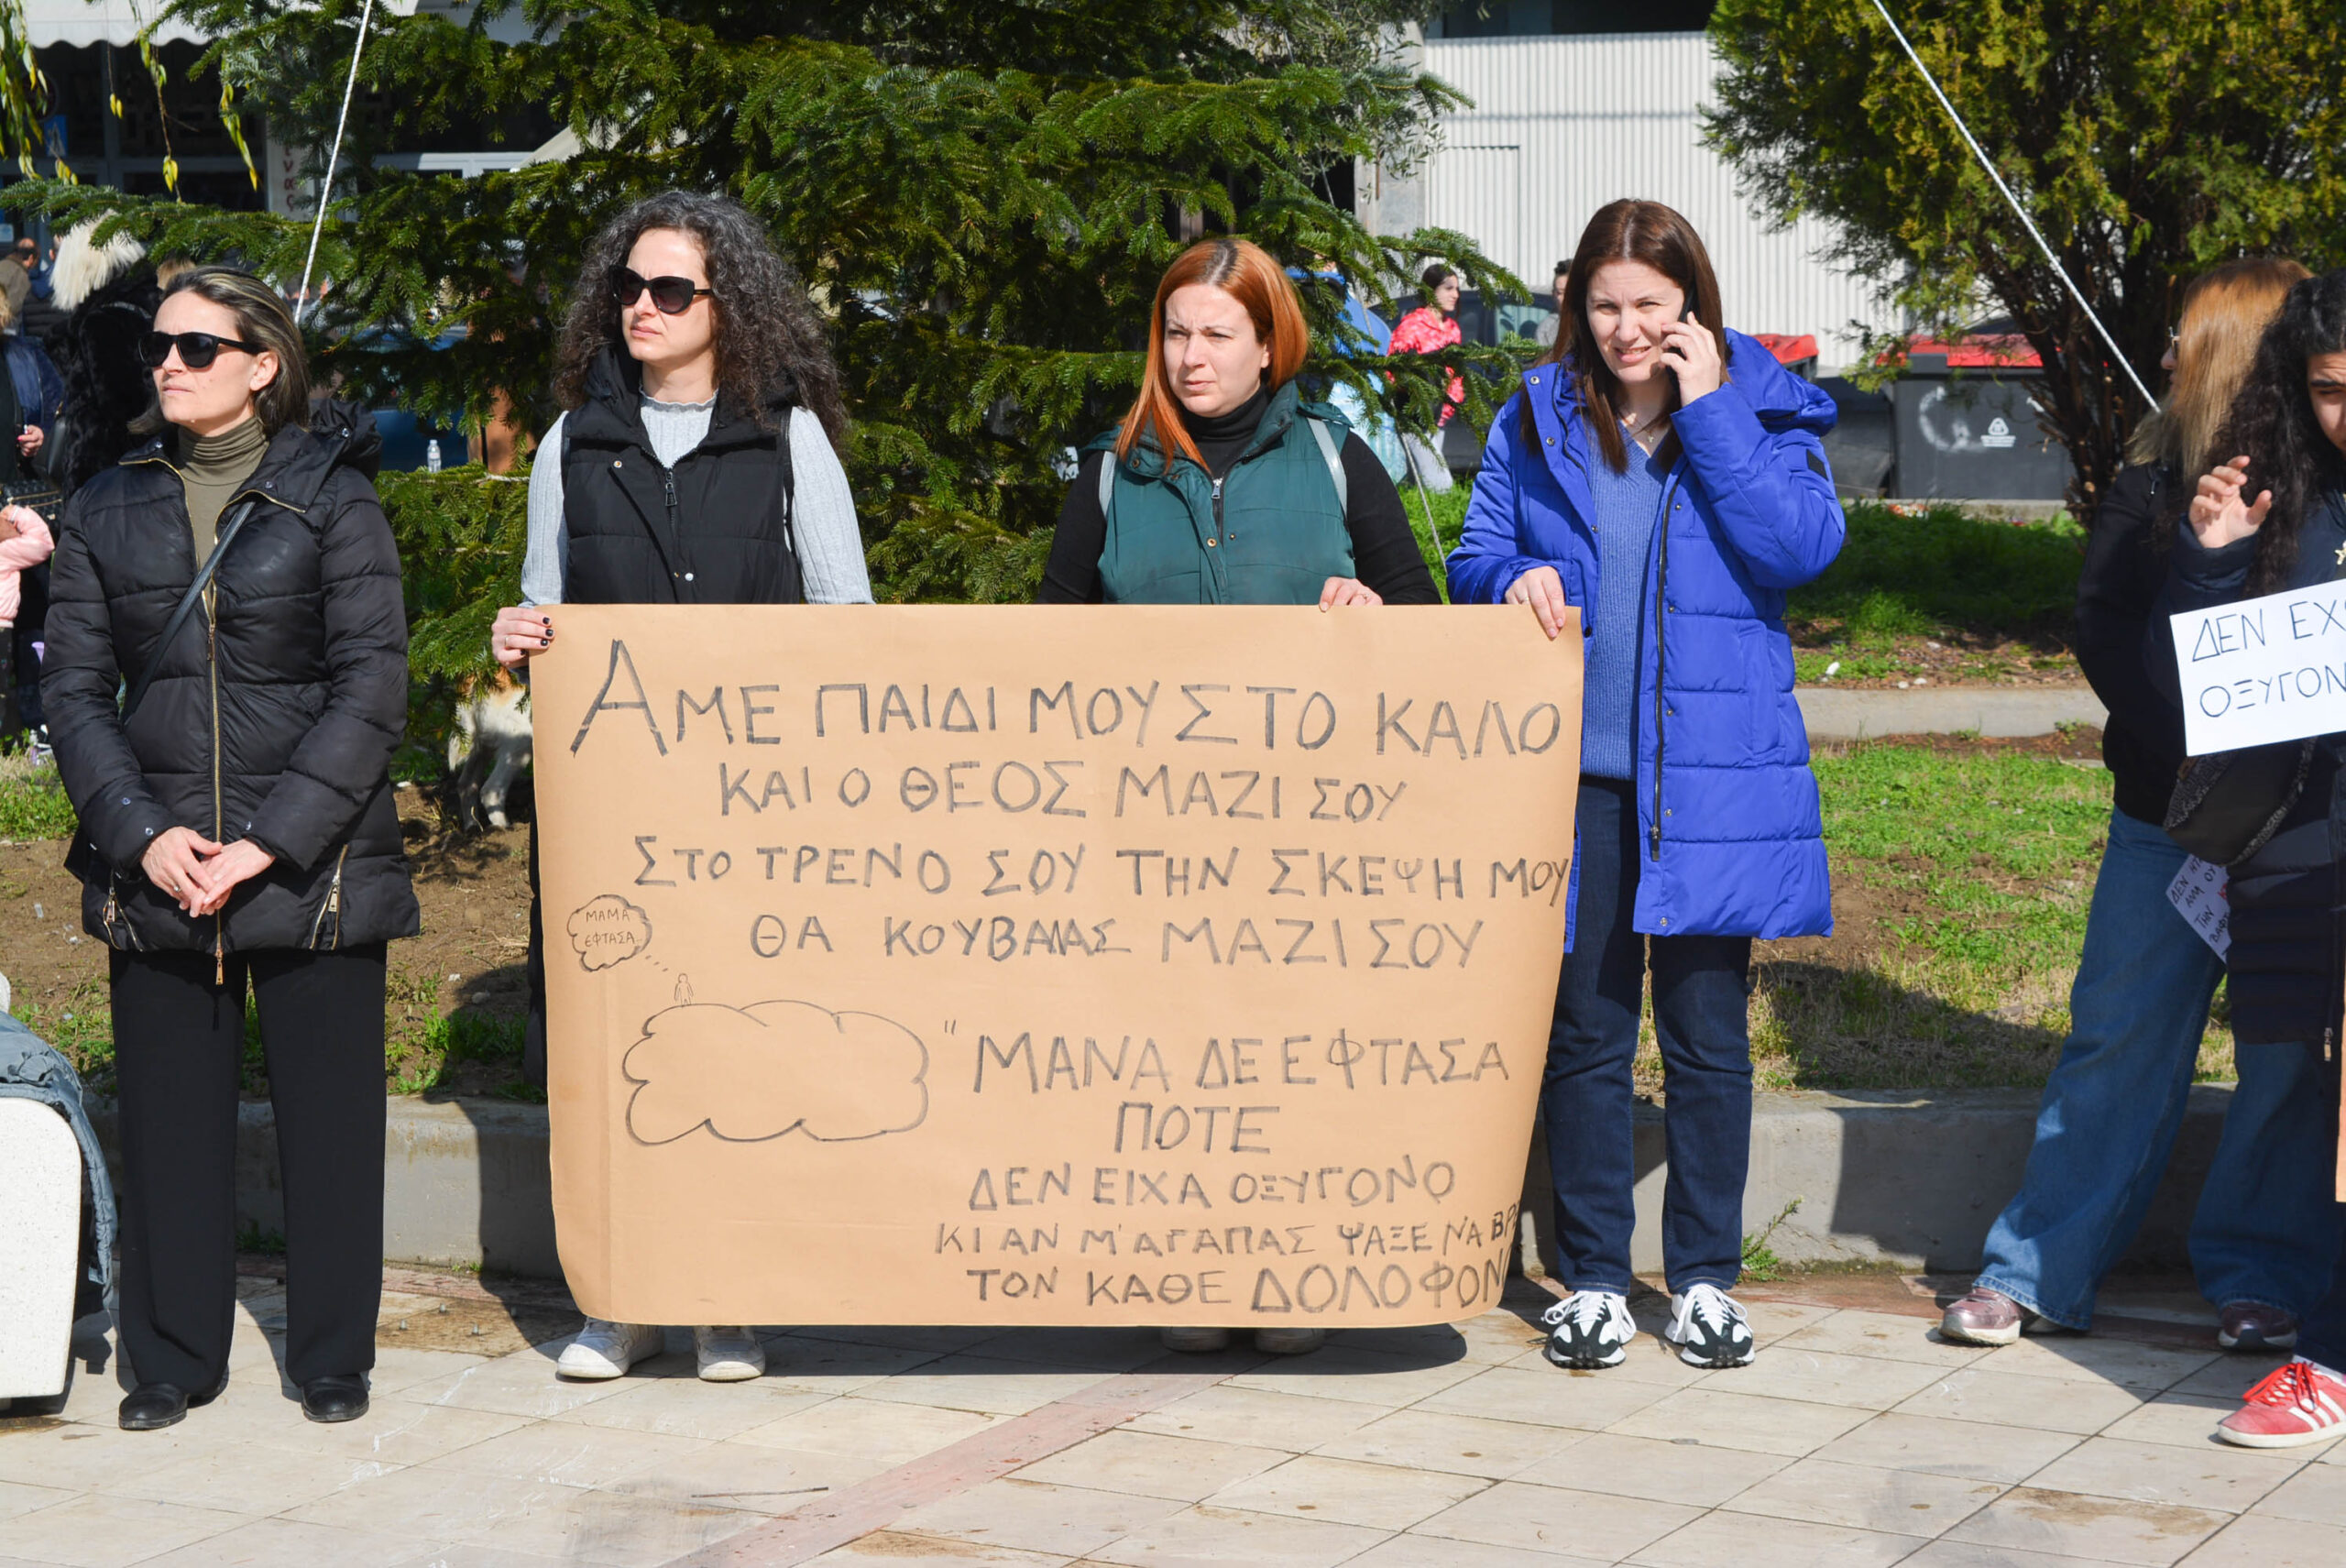 ΑΜΕ ΠΑΙΔΙ ΜΟΥ ΣΤΟ ΚΑΛΟ
ΚΑΙ Ο ΘΕΟΣ ΜΑΖΙ ΣΟΥ
ΣΤΟ ΤΡΕΝΟ ΣΟΥ ΤΗΝ ΣΚΕΨΗ ΜΟΥ
ΘΑ ΚΟΥΒΑΛΑΣ ΜΑΖΙ ΣΟΥ
ΜΑΜΑ
ΕΦΤΑΣΑ..
"ΜΑΝΑ ΔΕ ΕΦΤΑΣΑ
ΠΟΤΕ
ΔΕΝ ΕΙΧΑ ΟΞΥΓΟΝΟ
ΚΙ ΑΝ Μ'ΑΓΑΠΑΣ ΨΑΞΕ ΝΑ
ΤΟΝ ΚΑΘΕ ΔΟΛΟΦΟΝ
ΔΕΝ ΕΧ
ΟΞΥΓΟΝ
ΔΕΝ
ΤΗΝ